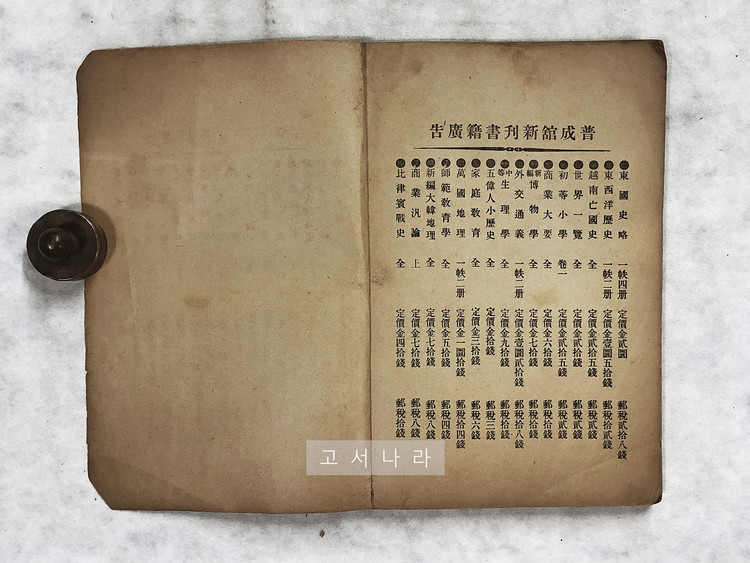 普成舘新刊書籍廣告
●東國史略 一帙四册 定價金貳圜 郵稅貳拾八錢
●東西洋歷史 一帙二册 定價金壹圜五拾錢 郵稅拾貳錢
●越南亡國史 全 定價金貳拾五錢 郵稅貳錢
●世界一覽 全 定價金貳拾錢 郵稅貳錢
●初等小學 卷一 定價金貳拾五錢 郵稅貳錢
●商業大要 全 定價金六拾錢 郵稅拾錢
●新編博物學 全 定價金七拾錢 郵稅拾錢
●外交通義 一帙二册 定價金壹圜貳拾錢 郵稅拾八錢
●中等生理學 全 定價金九拾錢 郵稅拾錢
●五偉人小歷史 全 定價金拾錢 郵稅三錢
●家庭敎育 全 定價金三拾錢 郵稅六錢
●萬國地理 一帙二册 定價金一圜拾錢 郵稅拾四錢
●師範敎育學 全 定價金五拾錢 郵稅四錢
●新編大韓地理 全 定價金七拾錢 郵稅八錢
●商業汎論 上 定價金七拾錢 郵稅八錢
●比律賓戰史 全 定價金四拾錢 郵稅拾錢
고서나라